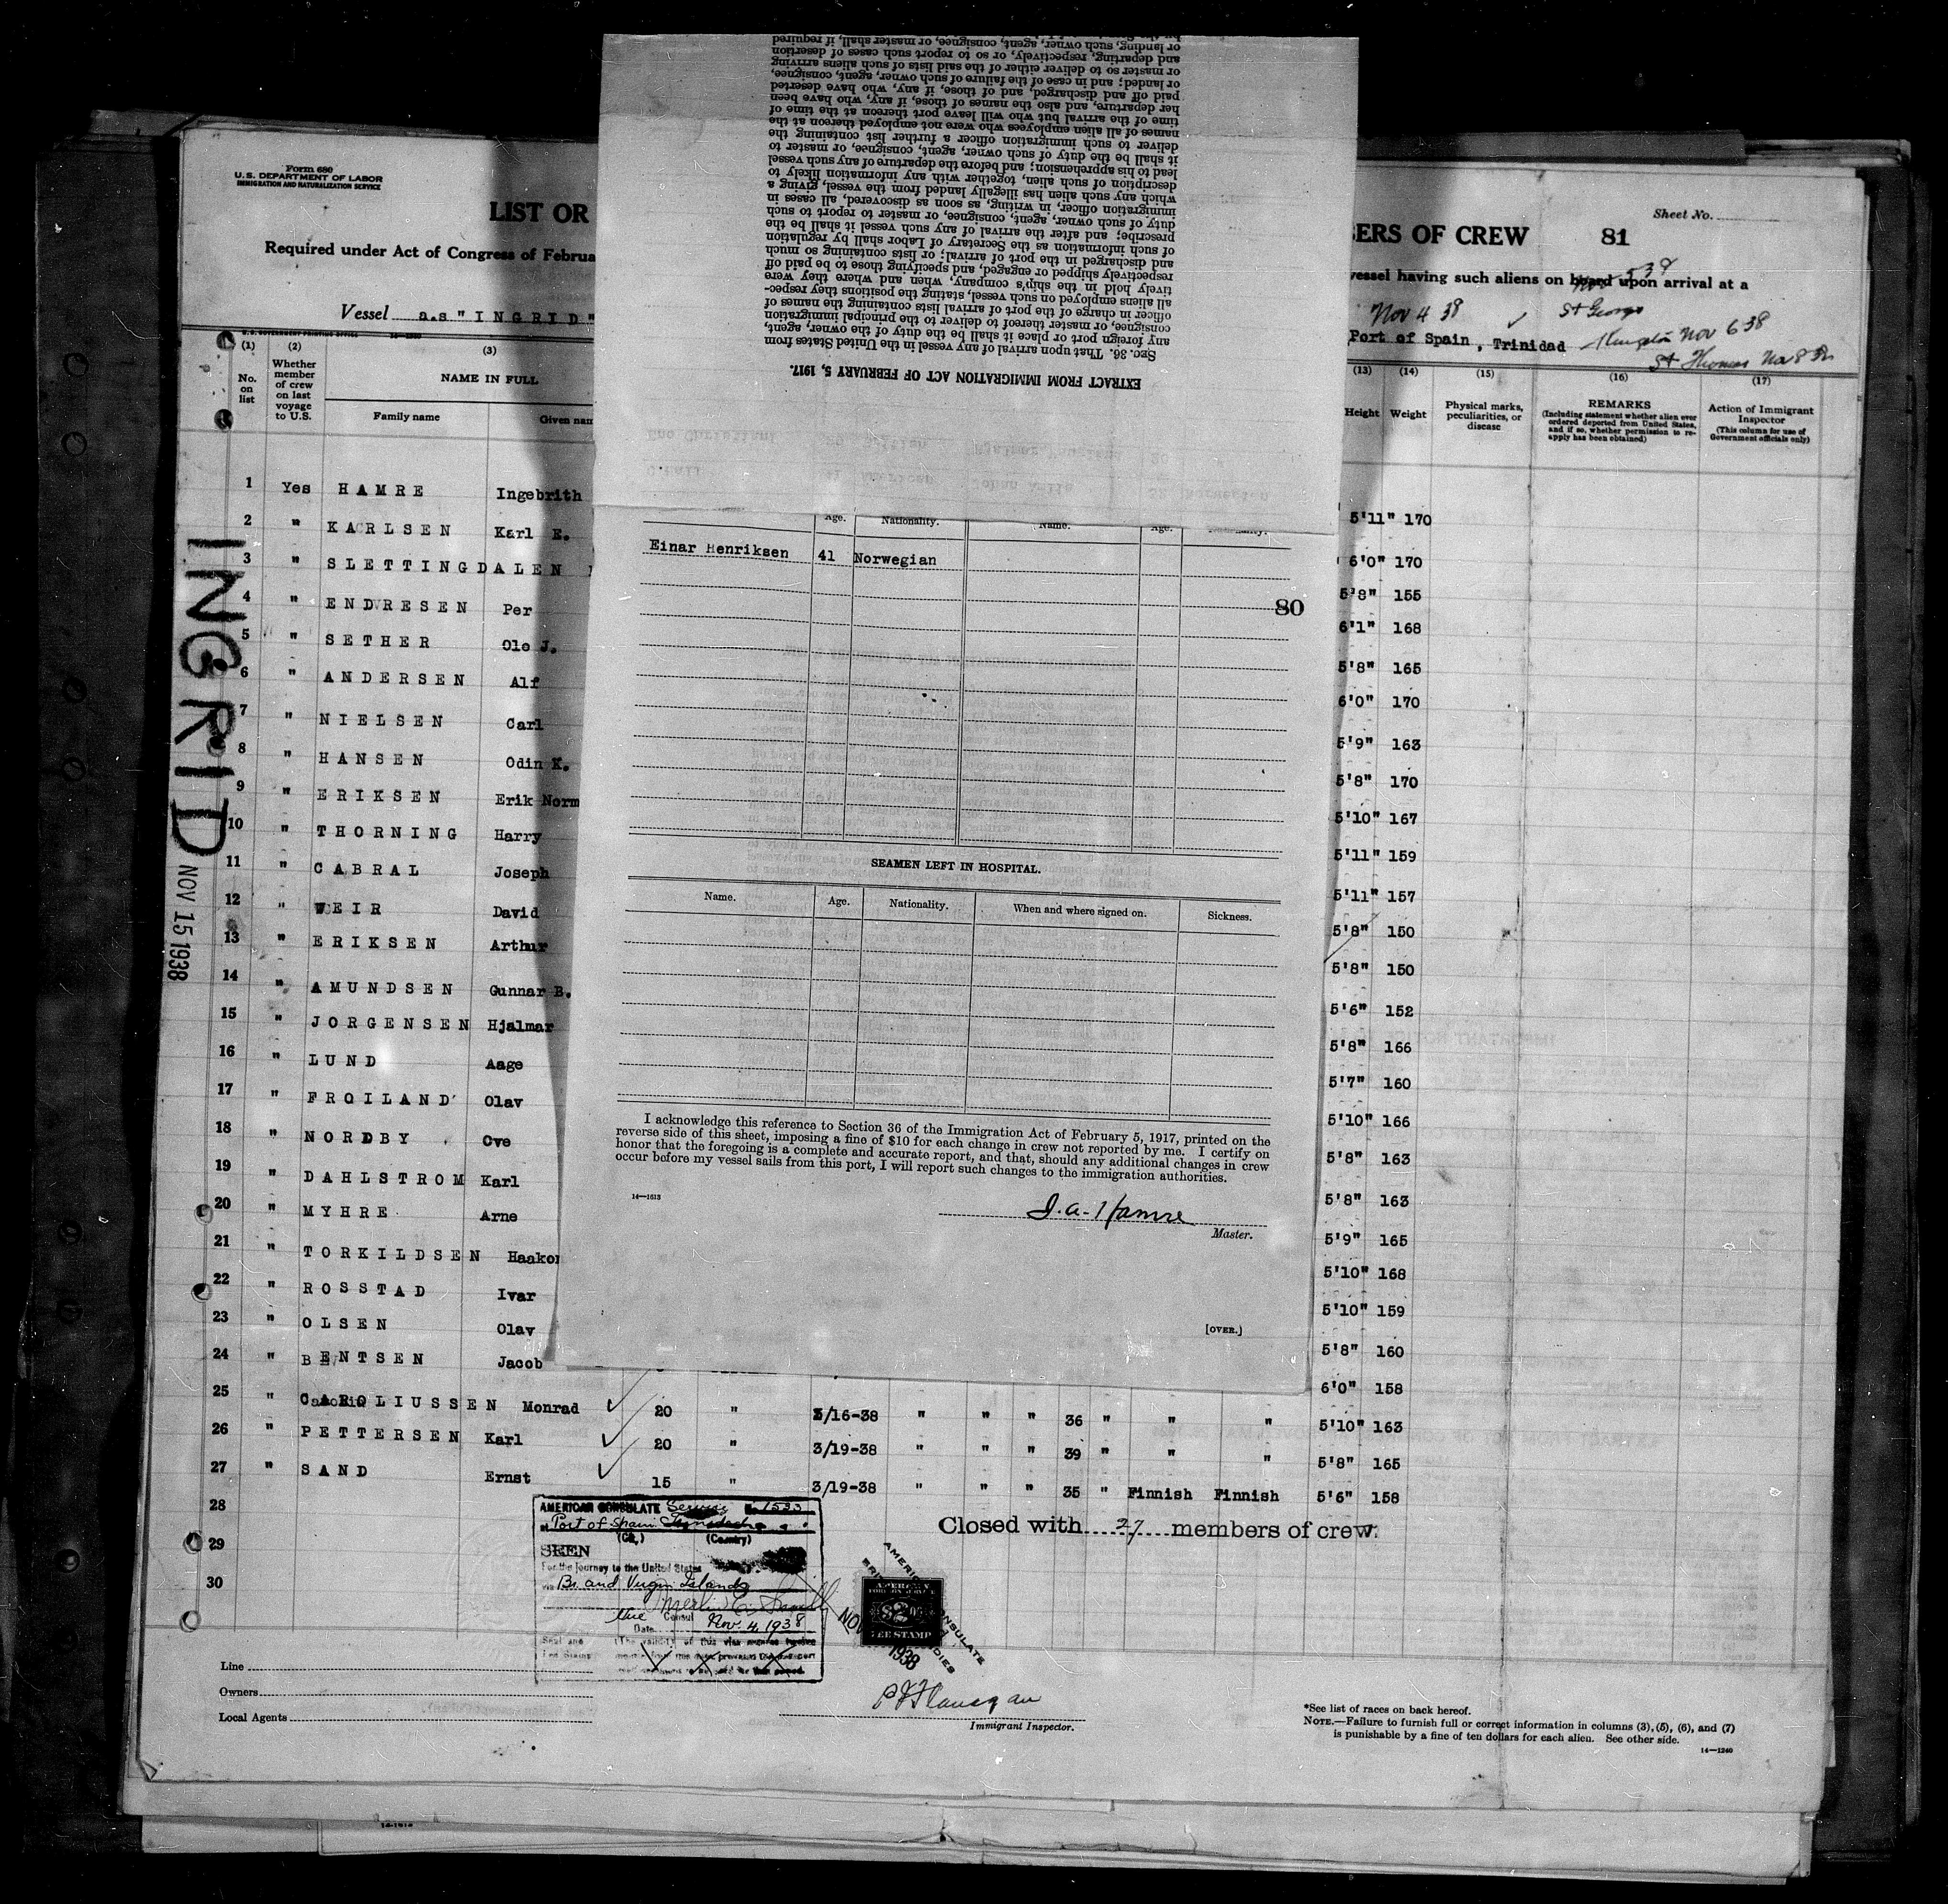 Form 680
U.S. DEPARTMENT OF LABOR
IMMIGRATION AND NATURALIZATION SERVICE
Sheet No.
LIST OR
BERS OF CREW 81
Required under Act of Congress of Februa
vessel having such aliens on board upon arrival at a
Vessel a.s "INGRID"
Nov 4 38 St George
Port of Spain, Trinidad Kingston Nov 6 38
St Thomas Nov 8 38
by the
or landing, such owner, agent, consignee, or master shall, if required
and departing, respectively, or so to report such cases of desertion
or master so to deliver either of the said lists of such aliens arriving
or landed; and in case of the failure of such owner, agent, consignee,
paid off and discharged, and of those, if any, who have deserted
her departure, and also the names of those, if any, who have been
time of the arrival but who will leave port thereon at the time of
names of all alien employees who were not employed thereon at the
deliver to such immigration officer a further list containing the
it shall be the duty of such owner, agent, consignee, or master to
lead to his apprehension; and before the departure of any such vessel
description of such alien, together with any information likely to
which any such alien has illegally landed from the vessel, giving a
immigration officer, in writing, as soon as discovered, all cases in
duty of such owner, agent, consignee, or master to report to such
prescribe; and after the arrival of any such vessel it shall be the
of such information as the Secretary of Labor shall by regulation
and discharged in the port of arrival; or lists containing so much
respectively shipped or engaged, and specifying those to be paid off
tively hold in the ship's company, when and where they were
all aliens employed on such vessel, stating the positions they respec-
officer in charge of the port of arrival lists containing the names of
consignee, or master thereof to deliver to the principal immigration
any foreign port or place it shall be the duty of the owner, agent,
Sec. 36. That upon arrival of any vessel in the United States from
EXTRACT FROM IMMIGRATION ACT OF FEBRUARY 5, 1917.
(1) (2) (3) (13) (14) (15) (16) (17)
No. on list
Whether member of crew on last voyage to U.S.
NAME IN FULL
Family name Given nam
Height Weight
Physical marks, peculiarities, or disease
REMARKS
(Including statement whether alien ever ordered deported from United States, and if so, whether permission to re-apply has been obtained)
Action of Immigrant Inspector
(This column for use of Government officials only)
INGRID
NOV 15 1938
1 Yes HAMRE Ingebrith 5'11" 170
2 " KARLSEN Karl E. 6'0" 170
3 " SLETTINGDALEN 5'8" 155
4 " ENDRESEN Per 6'1" 168
5 " SETHER Ole J. 5'8" 165
6 " ANDERSEN Alf 6'0" 170
7 " NIELSEN Carl 5'9" 163
8 " HANSEN Odin K. 5'8" 170
9 " ERIKSEN Erik Norm 5'10" 167
10 " THORNING Harry 5'11" 159
11 " CABRAL Joseph 5'11" 157
12 " WEIR David 5'8" 150
13 " ERIKSEN Arthur 5'8" 150
14 " AMUNDSEN Gunnar B. 5'6" 152
15 " JORGENSEN Hjalmar 5'8" 166
16 " LUND Aage 5'7" 160
17 " FROILAND Olav 5'10" 166
18 " NORDBY Ove 5'8" 163
19 " DAHLSTROM Karl 5'8" 163
20 " MYHRE Arne 5'9" 165
21 " TORKILDSEN Haakon 5'10" 168
22 " ROSSTAD Ivar 5'10" 159
23 " OLSEN Olav 5'8" 160
24 " BENTSEN Jacob 6'0" 158
25 " CAROLIUSSEN Monrad 20 " 3/16-38 " " " 36 " " " 5'10" 163
26 " PETTERSEN Karl 20 " 3/19-38 " " " 39 " " " 5'8" 165
27 " SAND Ernst 15 " 3/19-38 " " " 35 " Finnish Finnish 5'6" 158
28
29
30
Age. Nationality. Name. Age.
Einar Henriksen 41 Norwegian
80
SEAMEN LEFT IN HOSPITAL.
Name. Age. Nationality. When and where signed on. Sickness.
I acknowledge this reference to Section 36 of the Immigration Act of February 5, 1917, printed on the
reverse side of this sheet, imposing a fine of $10 for each change in crew not reported by me. I certify on
honor that the foregoing is a complete and accurate report, and that, should any additional changes in crew
occur before my vessel sails from this port, I will report such changes to the immigration authorities.
14—1613
I. a. Hamre
Master.
[OVER.]
Closed with 27 members of crew.
AMERICAN CONSULATE Service 1523
Port of Spain Trinidad
(City) (Country)
SEEN
For the journey to the United States
via Br. and Virgin Islands
Vice Consul
Date Nov. 4, 1938
Seal and Fee Stamp
(The validity of this visa
AMERICAN
FOREIGN SERVICE
$2
FEE STAMP
NOV 1938
AMERICAN CONSULATE
P J Flanagan
Immigrant Inspector.
Line
Owners
Local Agents
*See list of races on back hereof.
NOTE.—Failure to furnish full or correct information in columns (3), (5), (6), and (7)
is punishable by a fine of ten dollars for each alien. See other side.
14—1240